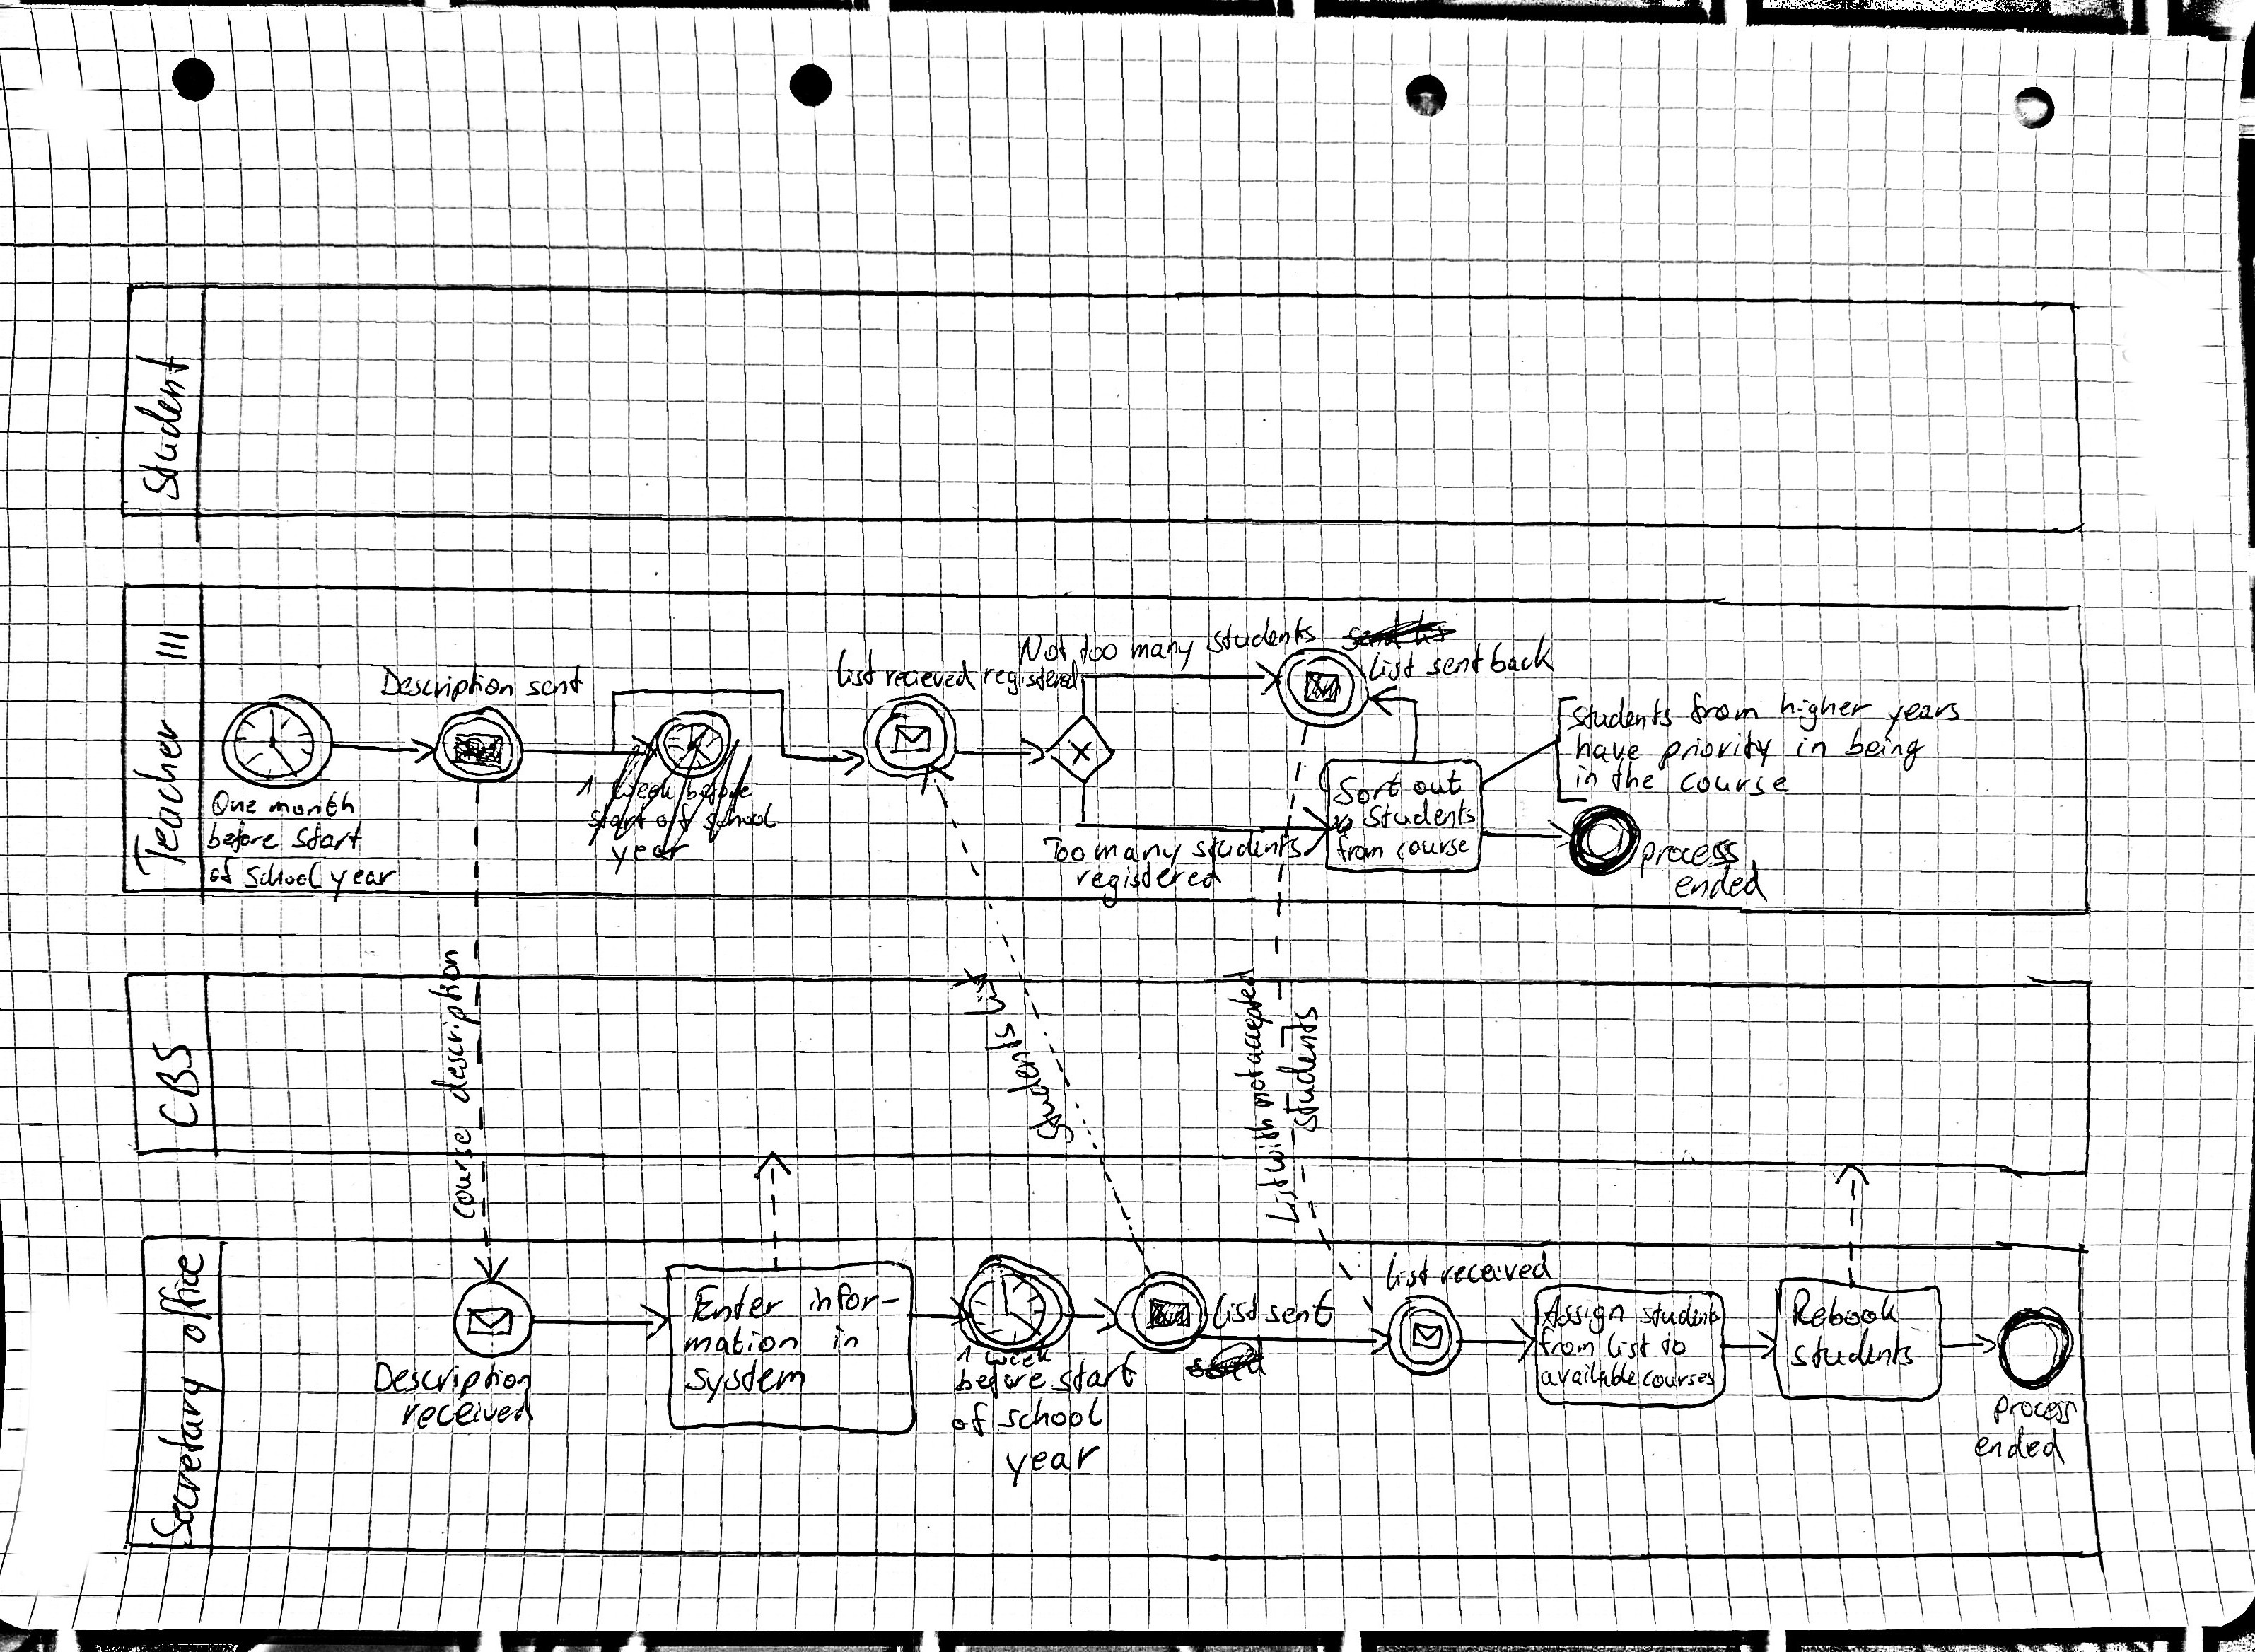 Student
Teacher III
Description sent
One month
before start
of school year
1 week before
start of school
year
List recieved
Not too many students
registered
List sent back
Too many students
registered
Sort out
Students
from course
Students from higher years
have priority in being
in the course
process
ended
CBS
course description
Students list
List with not accepted
students
Secretary office
Description
received
Enter infor-
mation in
system
1 week
before start
of school
year
List sent
List received
Assign students
from list to
available courses
Rebook
students
process
ended